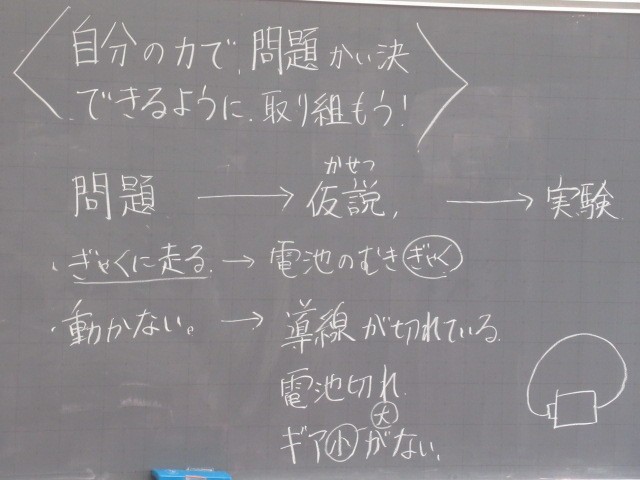 自分の力で、問題かい決
できるように、取り組もう!
問題 → 仮説 → 実験
かせつ
・ぎゃくに走る。→ 電池のむき ぎゃく
・動かない。→ 導線が切れている。
電池切れ
大
ギア小がない。